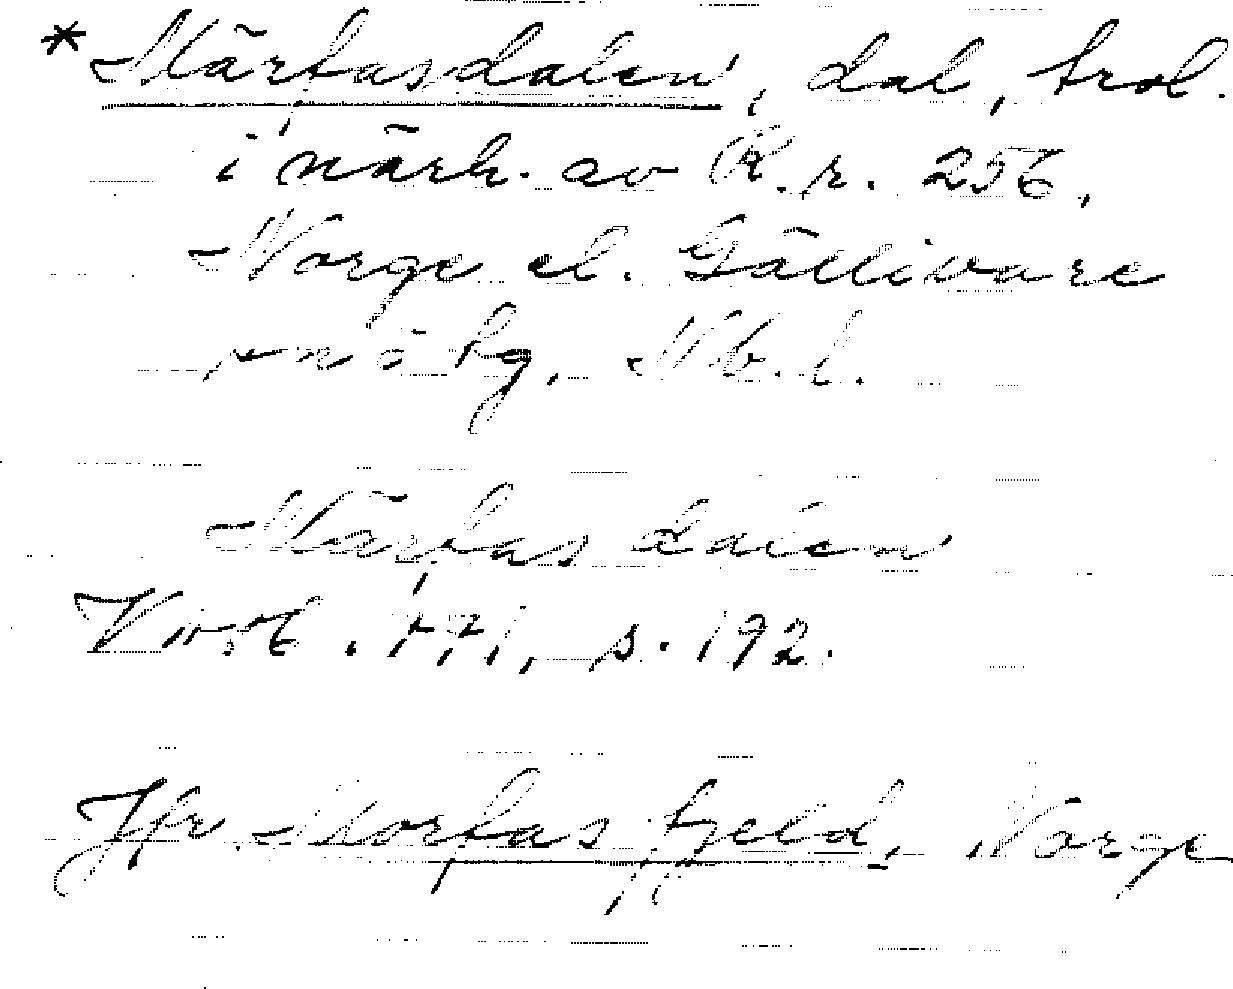 *Märfasdalen, dal, trol.
i närh. av R.r. 256,
Norge el. Gällivare
snö kg, Nb. l.
Märfas dalen
s. 192.
Jfr Morfas fjeld, Norge